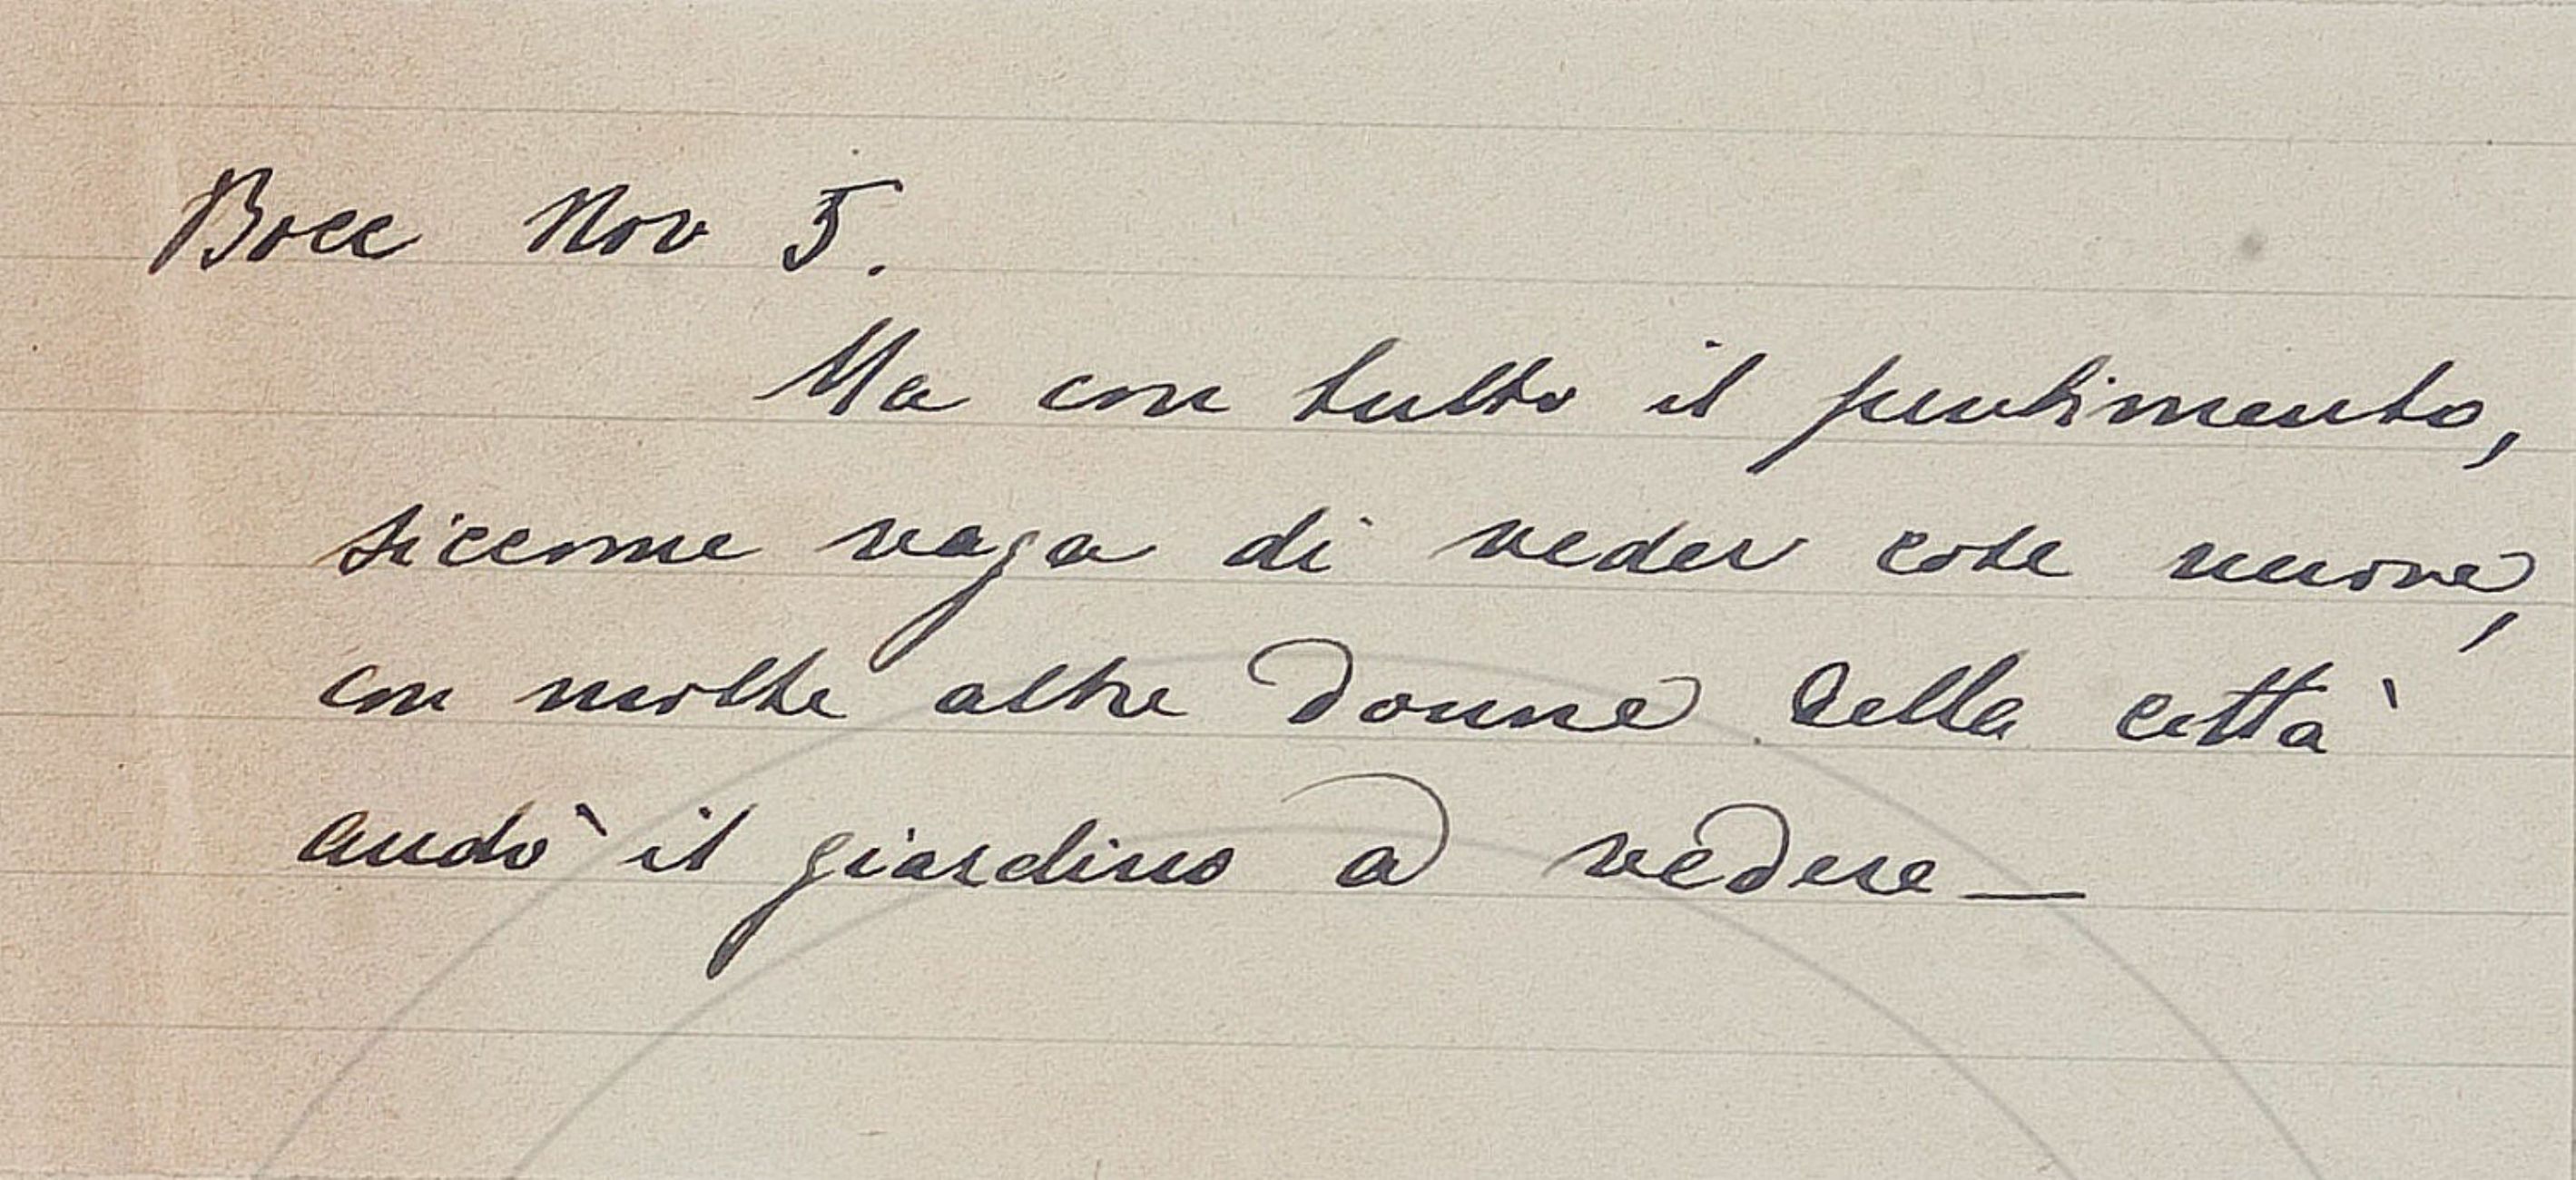 Bocc Nov 5.
Ma con tutto il pentimento,
siccome vaga di veder cose nuove,
con molte altre donne della città
andò il giardino a vedere—